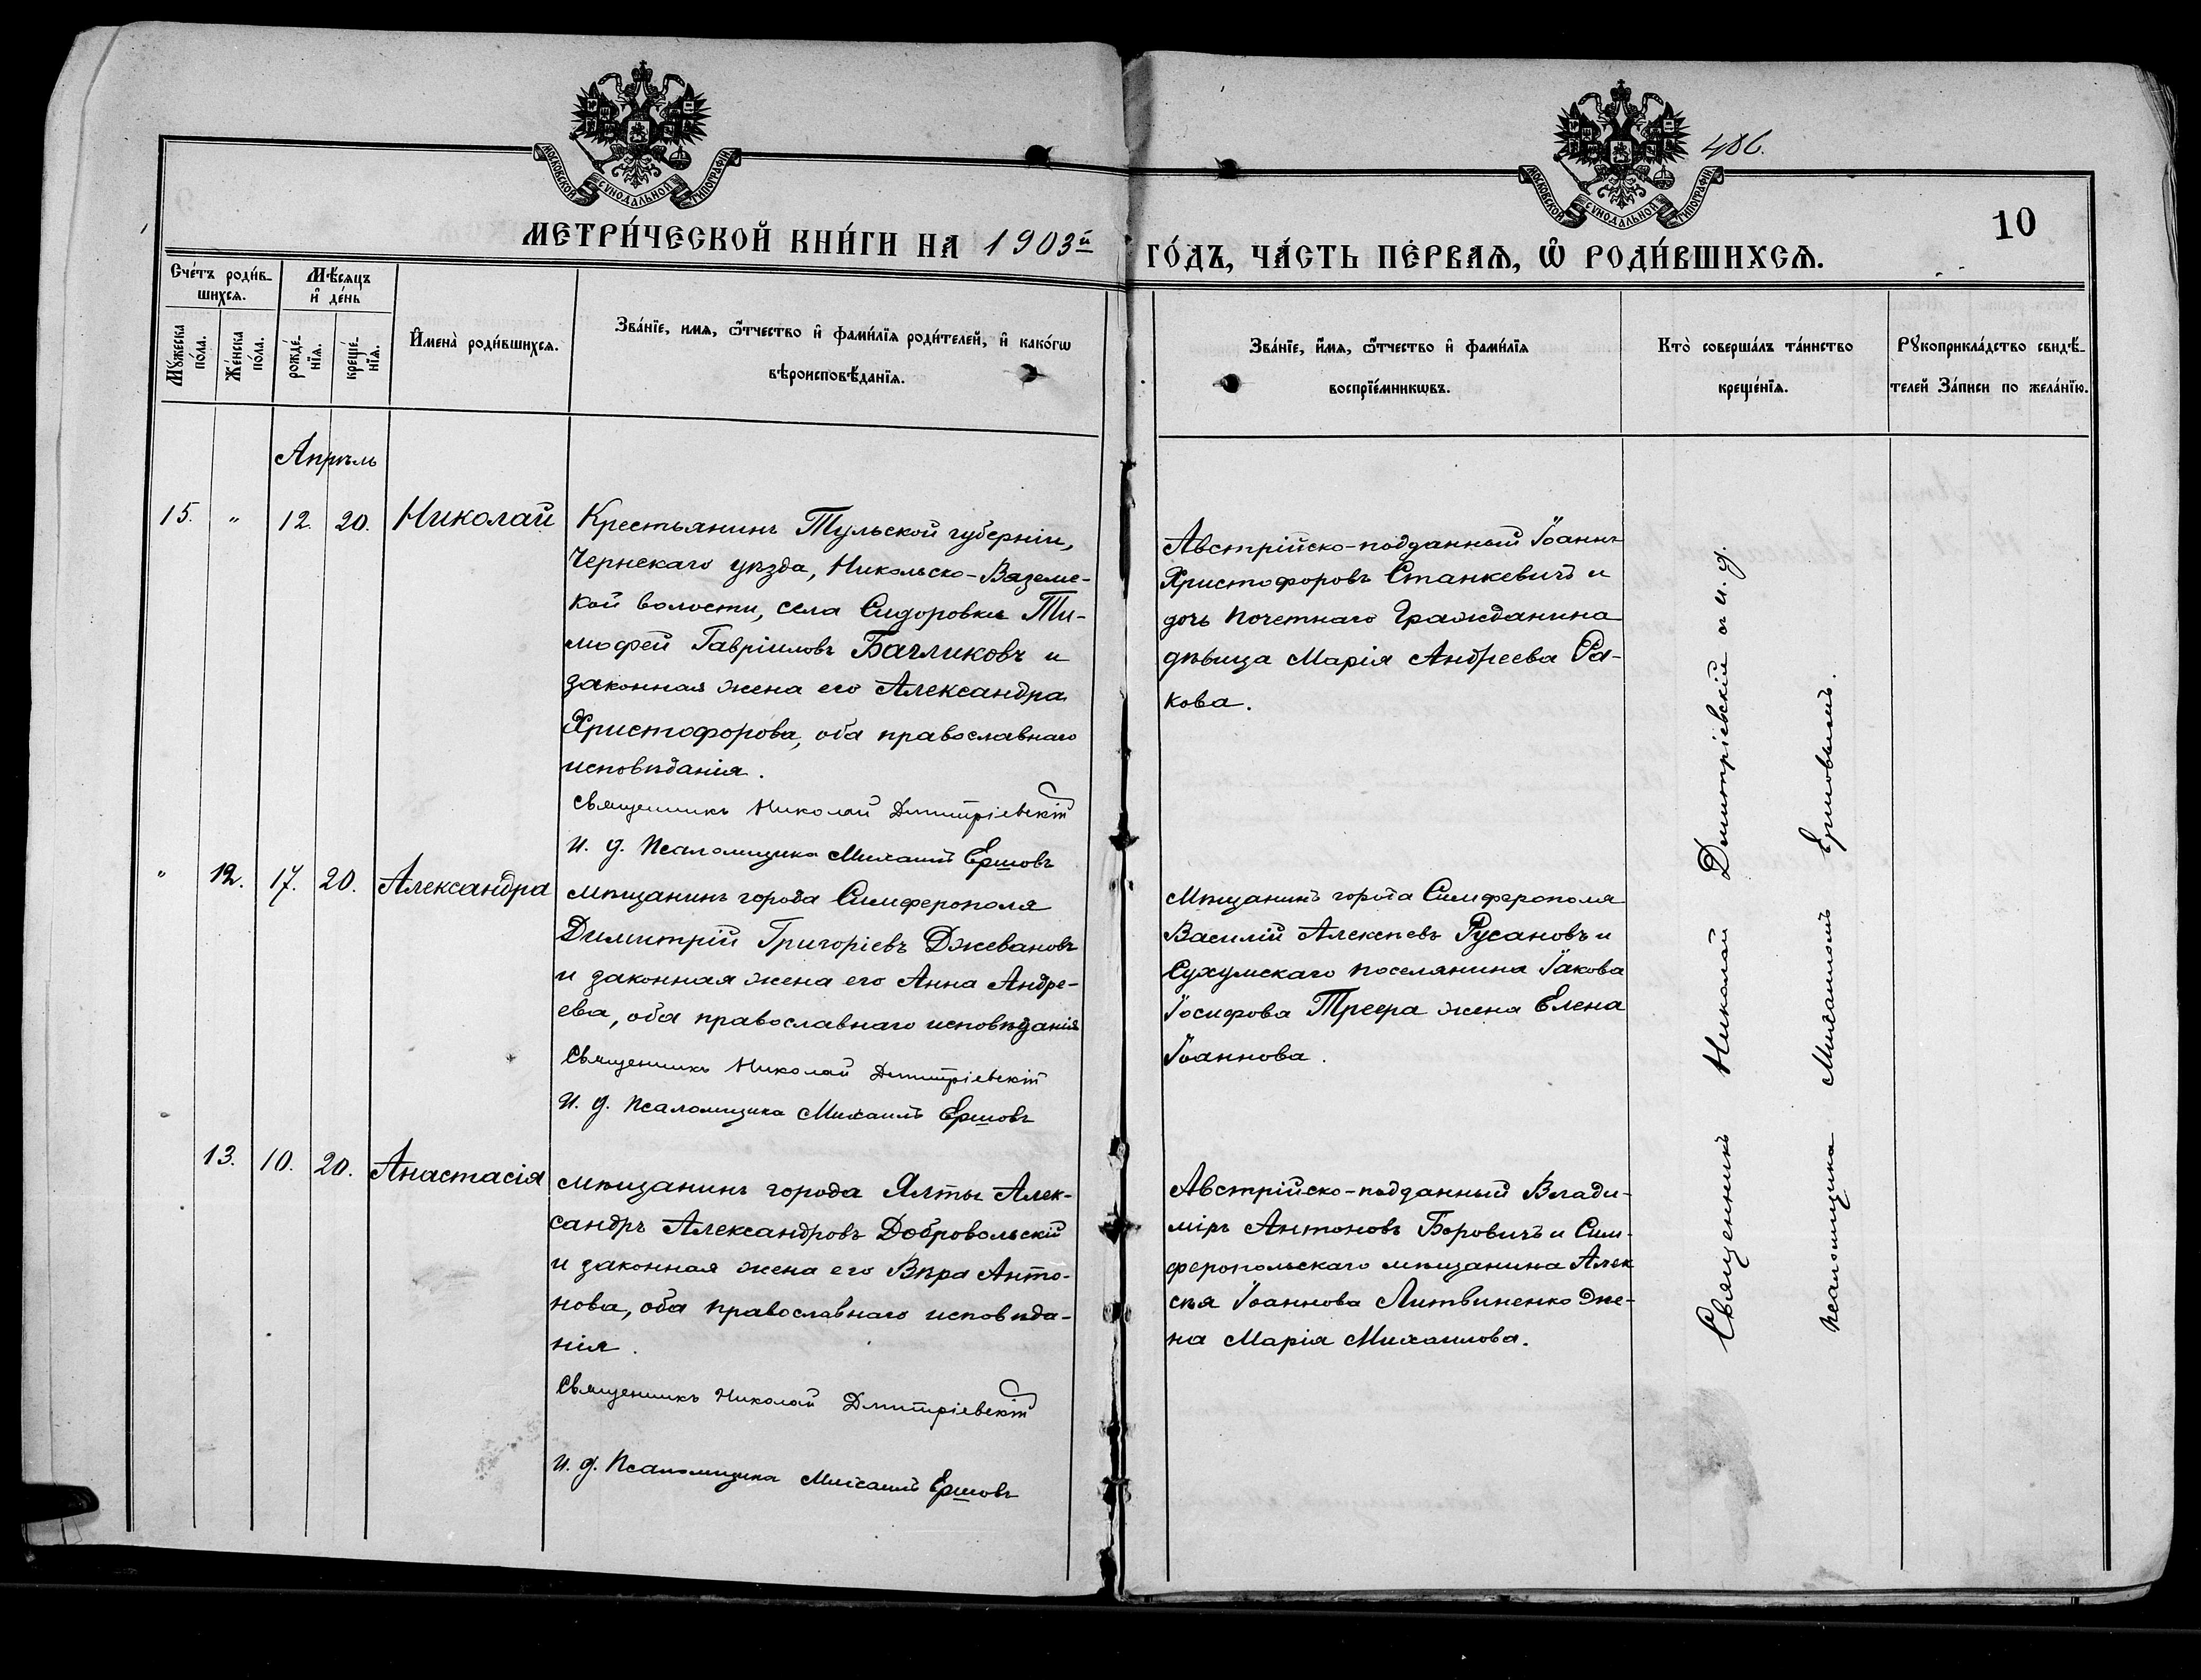 МОСКОВСКОЙ СѴНОДАЛЬНОЙ ТИПОГРАФІИ
МОСКОВСКОЙ СѴНОДАЛЬНОЙ ТИПОГРАФІИ
486.
10
МЕТРИ́ЧЕСКОЙ КНИ́ГИ НА 1903й
ГО́ДЪ, ЧА́СТЬ ПЕ́РВАѦ, Ѡ҆ РОДИ́ВШИХСѦ.
Сче́тъ роди́в-
шихсѧ.
Мꙋжеска
по́ла.
Же́нска
по́ла.
Мѣ́сѧцъ
и҆ де́нь
рожде́-
нїѧ.
креще́-
нїѧ.
И҆мена̀ роди́вшихсѧ.
Зва́нїе, имѧ, ѻ҆́тчество и҆ фами́лїѧ роди́телей, и҆ како́гѡ
вѣроисповѣ́данїѧ.
Зва́нїе, и҆́мѧ, ѻ҆́тчество и҆ фами́лїѧ
воспрїе́мникѡвъ.
Кто̀ соверша́лъ та́инство
креще́нїѧ.
Рꙋкоприкла́дство свидѣ́-
телей За́писи по жела́нїю.
Апрѣль
15. " 12. 20. Николай
Крестьянинъ Тульской губерніи,
Чернскаго уѣзда, Никольско-Вяземс-
кой волости, села Сидоровки Ти-
мофей Гавріиловъ Багликовъ и
законная жена его Александра
Христофорова, оба православнаго
исповѣданія.
Священникъ Николай Дмитріевскій
И. д. Псаломщика Михаилъ Ершовъ
Австрійско-подданный Іоаннъ
Христофоровъ Станкевичъ и
дочь почетнаго Гражданина
дѣвица Марія Андреева Ра-
кова.
" 12. 17. 20. Александра
мѣщанинъ города Симферополя
Димитрій Григоріевъ Джевановъ
и законная жена его Анна Андре-
ева, оба православнаго исповѣданія
Священникъ Николай Дмитріевскій
И. д. Псаломщика Михаилъ Ершовъ
Мѣщанинъ города Симферополя
Василій Алексѣевъ Русановъ и
Сухумскаго поселянина Іакова
Іосифова жена Елена
Іоаннова.
13. 10. 20. Анастасія
мѣщанинъ города Ялты Алек-
сандръ Александровъ Добровольскій
и законная жена его Вѣра Анто-
нова, оба православнаго исповѣда-
нія.
Священникъ Николай Дмитріевскій
И. д. Псаломщика Михаилъ Ершовъ
Австрійско-подданный Влади-
міръ Антоновъ Боровичъ и Сим-
феропольскаго мѣщанина Алек
сѣя Іоаннова Литвиненко же-
на Марія Михаилова.
Священникъ Николай Дмитріевскій съ и. д.
псаломщика Михаиломъ Ершовымъ.